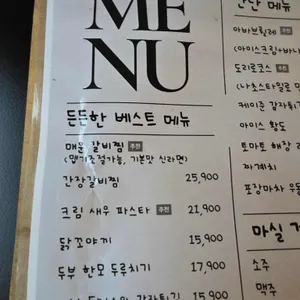 ME
NU
든든한 베스트 메뉴
매운 갈비찜 추천
(맵기조절가능, 기본맛 신라면)
간장갈비찜 25,900
크림 새우 파스타 추천 21,900
닭꼬야끼 15,900
두부 한모 두루치기 17,900
15,900
간단 메뉴
아바브림레 추천
(아이스크림+바나
도리로코스 추천
(나쵸스타일로
케이준 감자튀
아이스 황도
토마토 해장
짜계치
포장마차 우
마실
소주
맥주